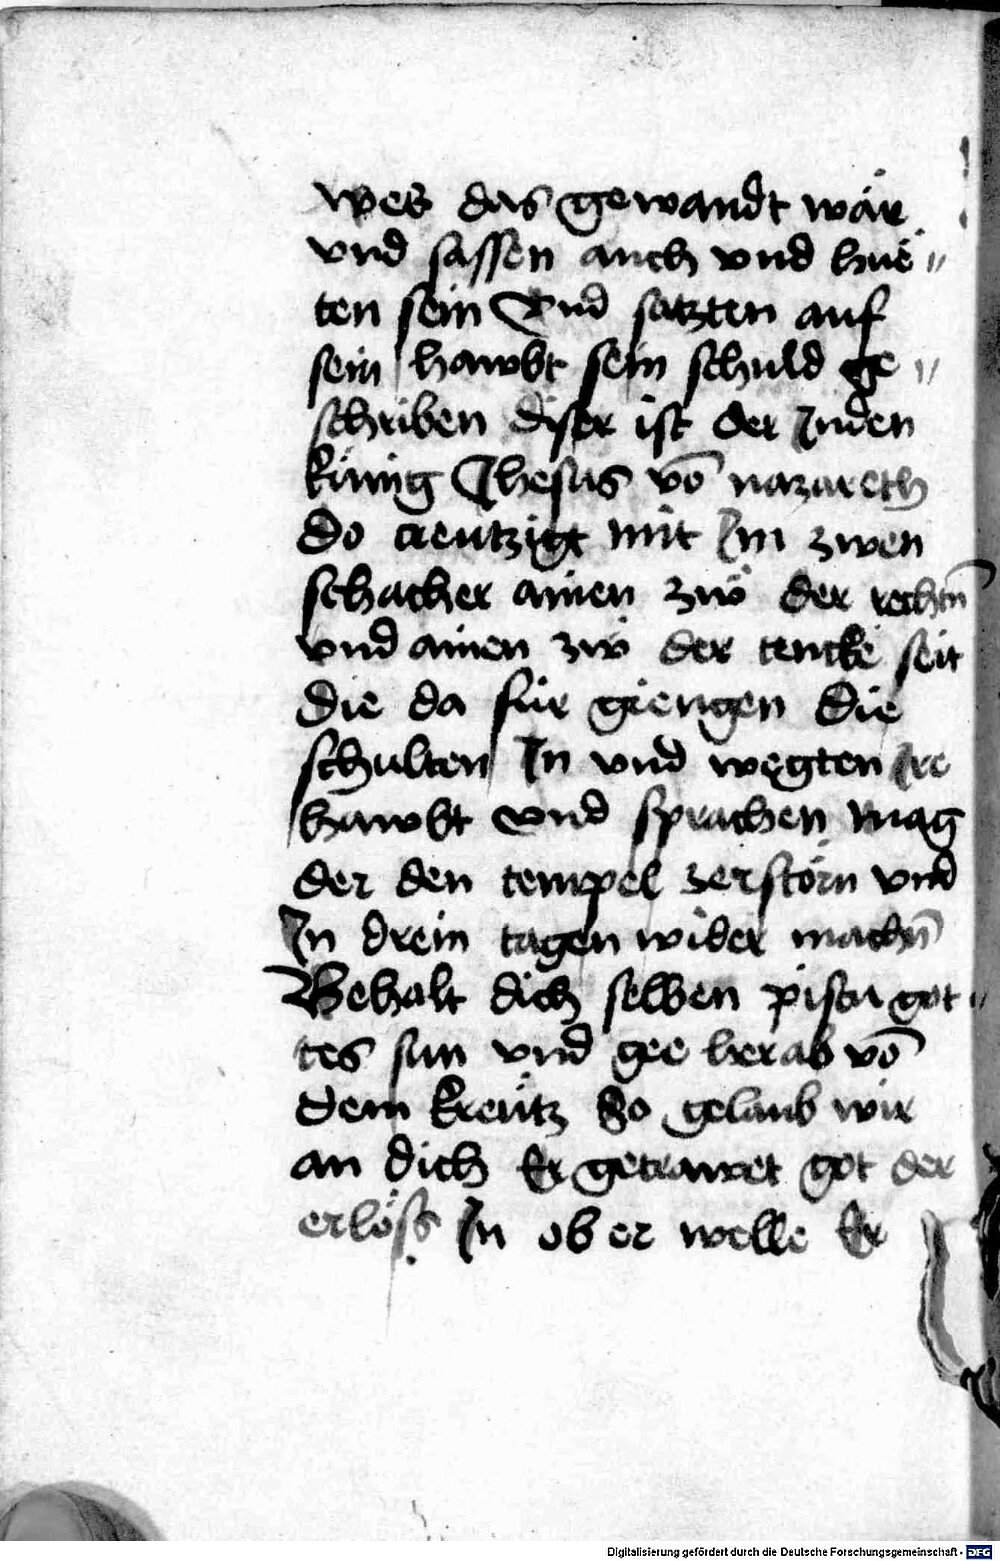 wes das gewandt wär
vnd sassen auch vnd hue〃
ten sein Vnd satzten auf
sein hawbt sein schuld ge〃
schriben diser ist der Juden
künig Jhesus vō nazareth
Do creutzigt mit Im zwen
schacher ainen zwo der rechtn̄
vnd ainen zwo der tencke seit
Die da für giengen Die
schulten In vnd wegten Ire
hawbt vnd sprachen mag
der den tempel zerstörn vnd
In drein tagen wider machn̄
Behalt dich selben pistu got〃
tes sun vnd gee herab vō
dem kreütz So gelaub wir
an dich Er getrawet got der
erlöss In ob er welle Er
Digitalisierung gefördert durch die Deutsche Forschungsgemeinschaft - DFG